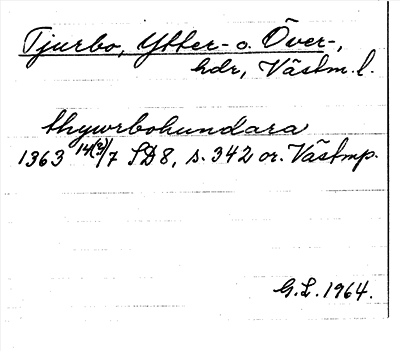 Tjurbo, Ytter- o. Över-,
hdr, Västm. l.
thywrbohundara
1363 14(?)/7 SD 8, s. 342 or. Västmp.
G.L. 1964.